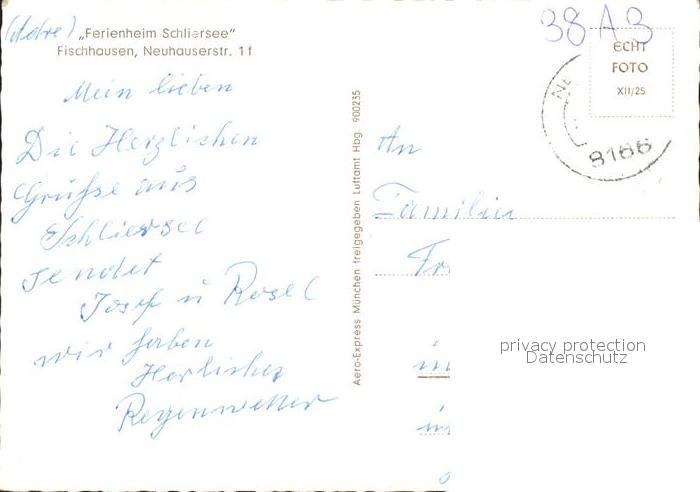 (Adre)
„Ferienheim Schliersee"
Fischhausen, Neuhauserstr. 1f
Mein lieben
Die Herzlichen
Grüße aus
Schliersee
sendet
Josef u Rosel
wir haben
Herliches
Regenwetter
Aero-Express München freigegeben Luftamt Hbg. 900235
38 A B
ECHT
FOTO
XII/25
8166
An
Familie
in
privacy protection
Datenschutz